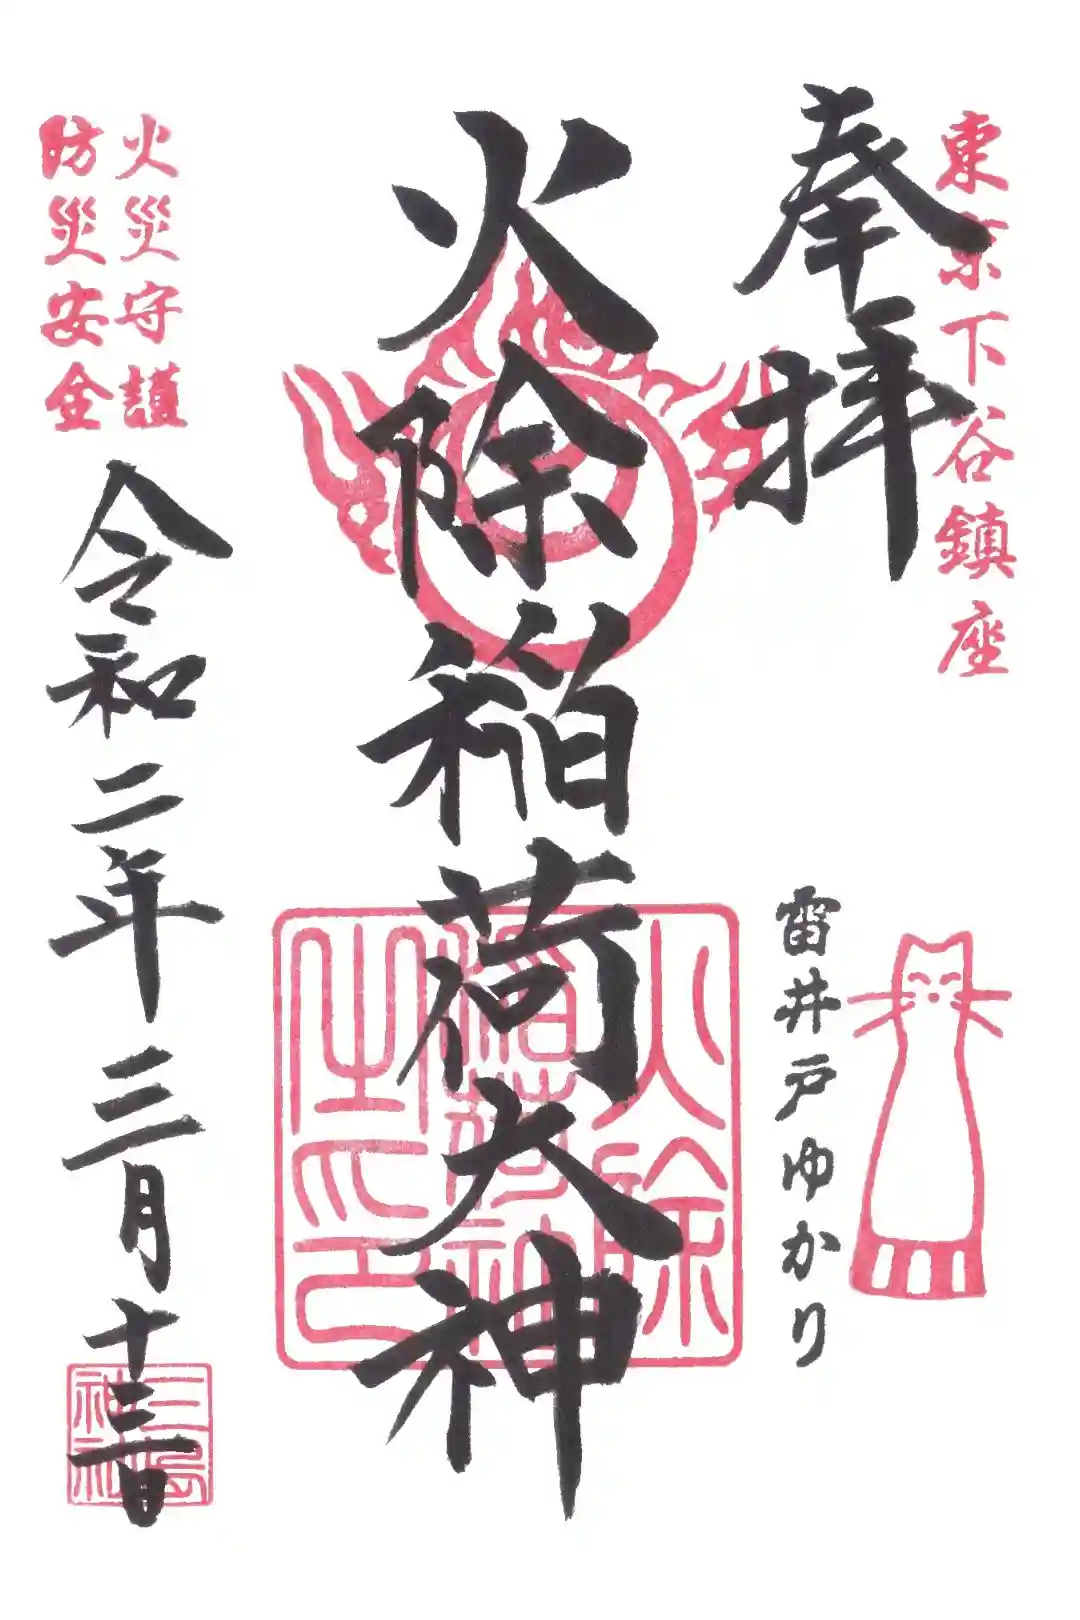 東京下谷鎮座
奉拝
雷井戸ゆかり
火除稲荷大神
火除
稲荷神
之印
火災守護
防災安全
令和二年三月十三日
三島
神社